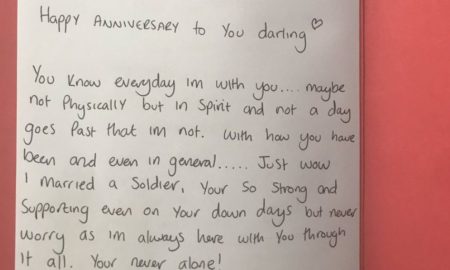 Happy ANNIVERSARY to You darling ♡
You Know everyday im with you.... maybe
not Physically but in Spirit and not a day
goes Past that im not. With how you have
been and even in general..... Just wow
I married a Soldier, Your So Strong and
Supporting even on Your down days but never
worry as im always here with You through
it all. Your never alone!